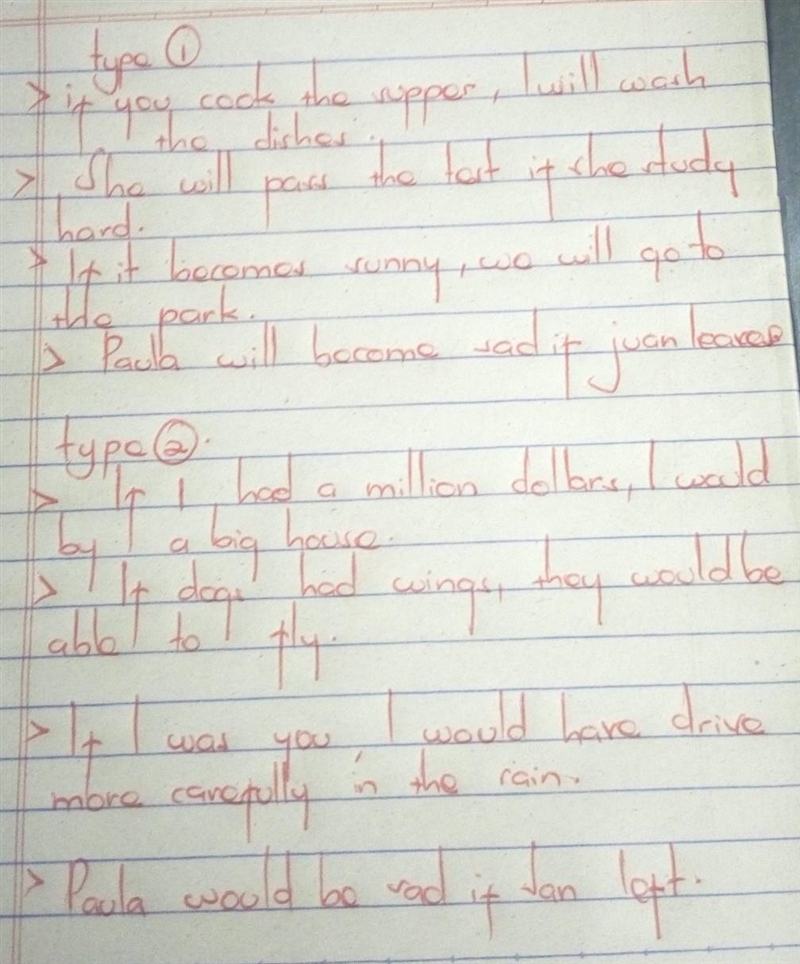 type ①
> if you cook the supper, I will wash
the dishes.
> She will pass the test if she study
hard.
> If it becomes sunny, we will go to
the park.
> Paula will become sad if juan leaves
type ②.
> If I had a million dollars, I would
by a big house.
> If dogs had wings, they would be
able to fly.
> If I was you, I would have drive
more carefully in the rain.
> Paula would be sad if Jan left.